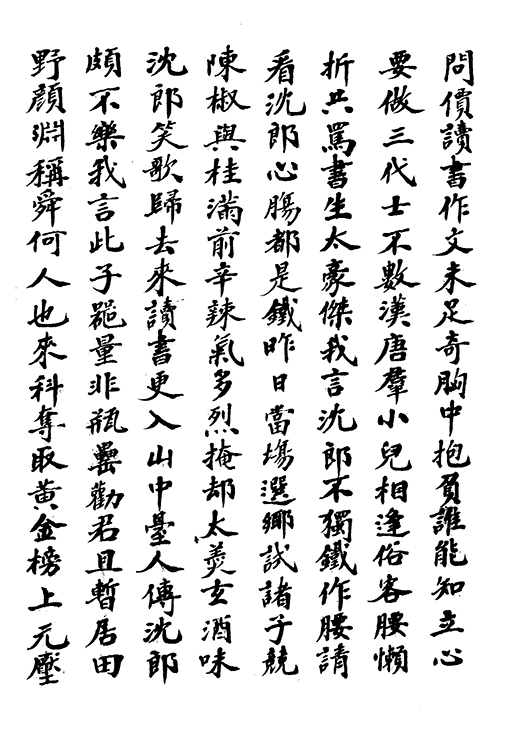 問價讀書作文未足奇胸中抱負誰能知立心
要做三代士不數漢唐羣小兒相逢俗客腰懶
折共罵書生太豪傑我言沈郎不獨鐵作腰請
看沈郎心腸都是鐵昨日當塲選鄉試諸子競
陳椒與桂滿前辛辣氣多烈掩却太羹玄酒味
沈郎笑歌歸去來讀書更入山中臺人傳沈郎
頗不樂我言此子器量非瓶罍勸君且暫居田
野顔淵稱舜何人也來科奪取黄金榜上元壓